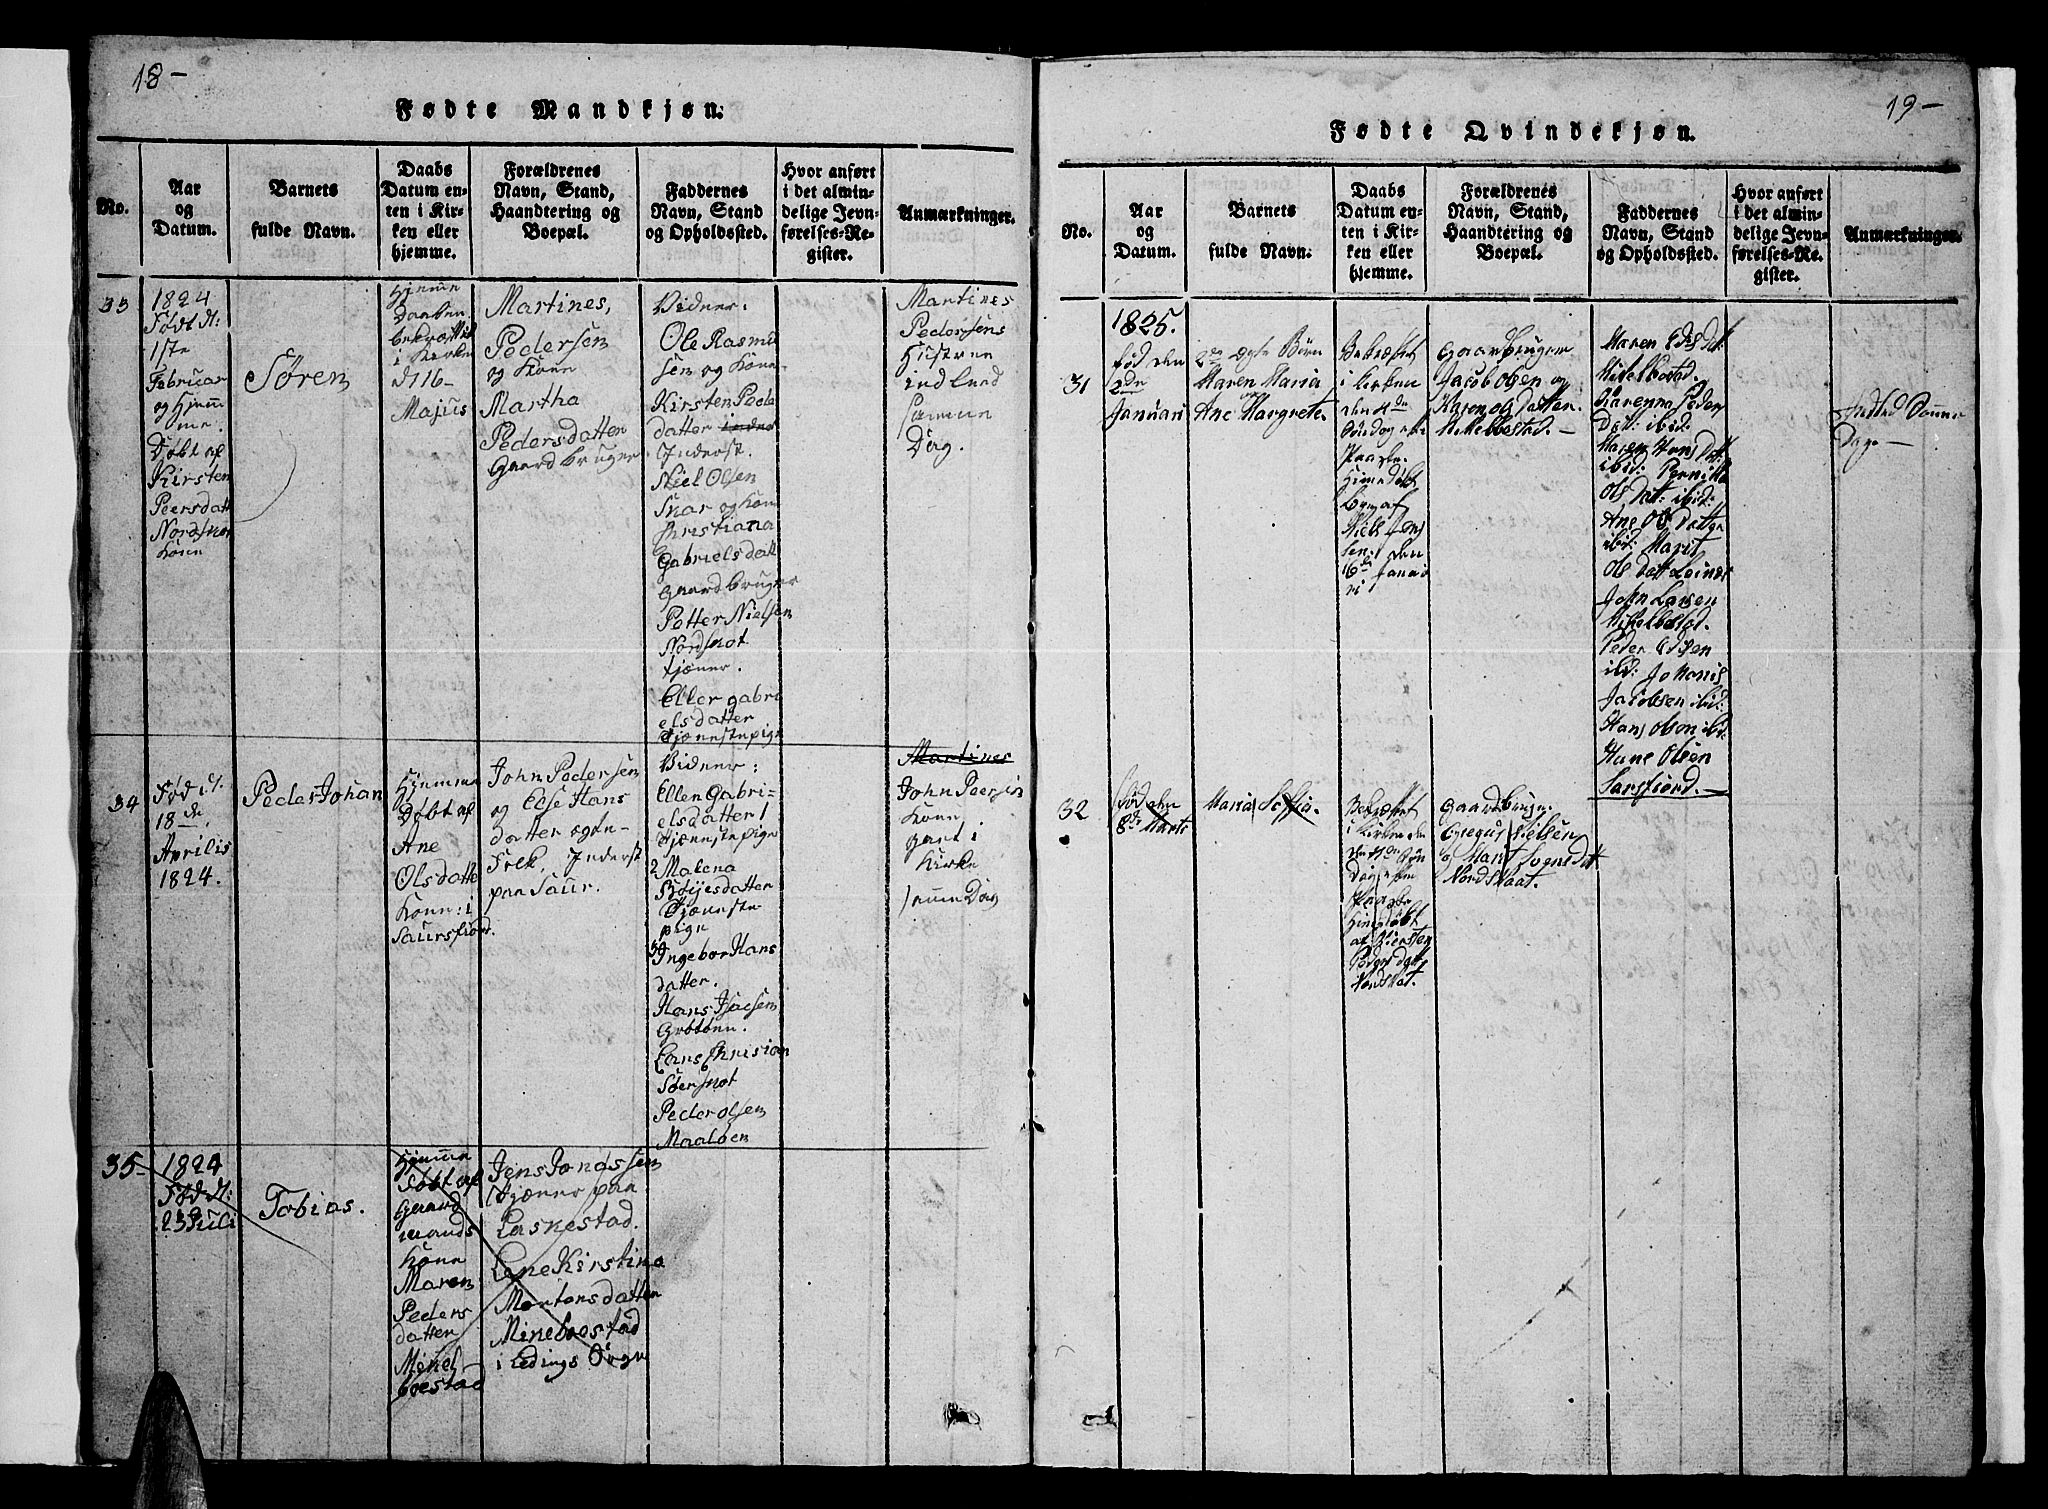 18-
Fødte Mandkjøn.
No.
Aar
og
Datum.
Barnets
fulde Navn.
Daabs
Datum en-
ten i Kir-
ken eller
hjemme.
Forældrenes
Navn, Stand,
Haandtering og
Boepæl.
Faddernes
Navn, Stand
og Opholdssted.
Hvor anført
i det almin-
delige Jevn-
førelses-Re-
gister.
Anmærkninger.
33
1824
Født d:
1ste
Februar
og hjem
me.
Døbt af
Kirsten
Peersdatt
Nordskot
Kone
Søren
Hjemme
Daaben
bekræfttid
i Kirken
d 16-
Majus
Martines,
Pedersen
og Kone
Martha
Pedersdatten
Gaardbruger
Vidner:
Ole Rasmu
sen og Kone
Kirsten Peder
datter
Inderst.
Niel Olsen
Skar og Kone
Christiana
Gabrielsdatt
gaardbruger
Petter Nielsen
Nordskot
tjæner.
Ellen gabri
elsdatter
tjænnstepige
Martines
Pedersens
Hustrue
indledt
samme
Dag.
34
Fød d.
18 de
Aprilis
1824.
Peder Johan
Hjemme
Døbt af
Ane
Olsdatter
Kone: i
Saursfiord.
John Pedersen
og Else Hans
datter ægte-
Folk, Inderst
paa Saur.
Vidner:
Ellen Gabri-
elsdatter 1
tjænnstepige
2 Malena
datter
Tjænnste-
pige
3 Ingebor Hans
datter.
Hans Isacsen
Grøtøen.
Lans Chrisian
Sørskot
Peder Olsen
Maaløen
Martines
John Peersen
Kone
gaet i
Kirke
samme Dag
35-
1824
Fød d:
23 Juli
Tobias.
Hjemme
Døbt af
Gaard
mands
Kone
Maren
Peders
datter
Mikel
boestad
Jens Jons sen
tjæner paa
Laskestad.
Lene Kirstina
Mortensdatter
Mikelboestad
i Ledings Sogn
19-
Fødte Qvindekjøn.
No.
Aar
og
Datum.
Barnets
fulde Navn.
Daabs
Datum en-
ten i Kir-
ken eller
hjemme.
Forældrenes
Navn, Stand,
Haandtering og
Boepæl.
Faddernes
Navn, Stand
og Opholdssted.
Hvor anført
i det almin-
delige Jevn-
førelses-Re-
gister.
Anmærkninger.
31
1825.
fød den
2den
Januari
2de ægte Børn
Maren Maria
og
Ane Margrete.
Bekræftet
i Kirken
den 4de
Søndag efter
Paaske.
Hiemdøbt
Niels Jens
sen. den
16de Janua
ri
Gaardbruger
Jacob Olsen og
Karen Ols Datter.
Mikelbostad. -
Maren Eds dt:
Mikelbostad.
Karenna Peders
Dat: ibid:
Maren Hans Dat:
ibid: Pernilla
Ols Dat: ibid:
Ane Ols Datter
ibid: Marit
Ols Datt
John Larsen
Mikelbostad.
Peder Edisen
ibid: Johanis
Jacobsen ibid:
Hans Olsen ibid:
Hans Olsen
Sarsfiord.
Indled Samme
Dag. -
32
Fød den
8de Marts
Maria Sofia.
Bekræftet
i Kirken den
den 4de Søn
Dag efter
Paaske
Hiemdøbt
af Kiersten
Peders datt
Nordskot.
Gaardbruger
Gregus Nielsen
og Marit Sogns Datt
Nordskaat.